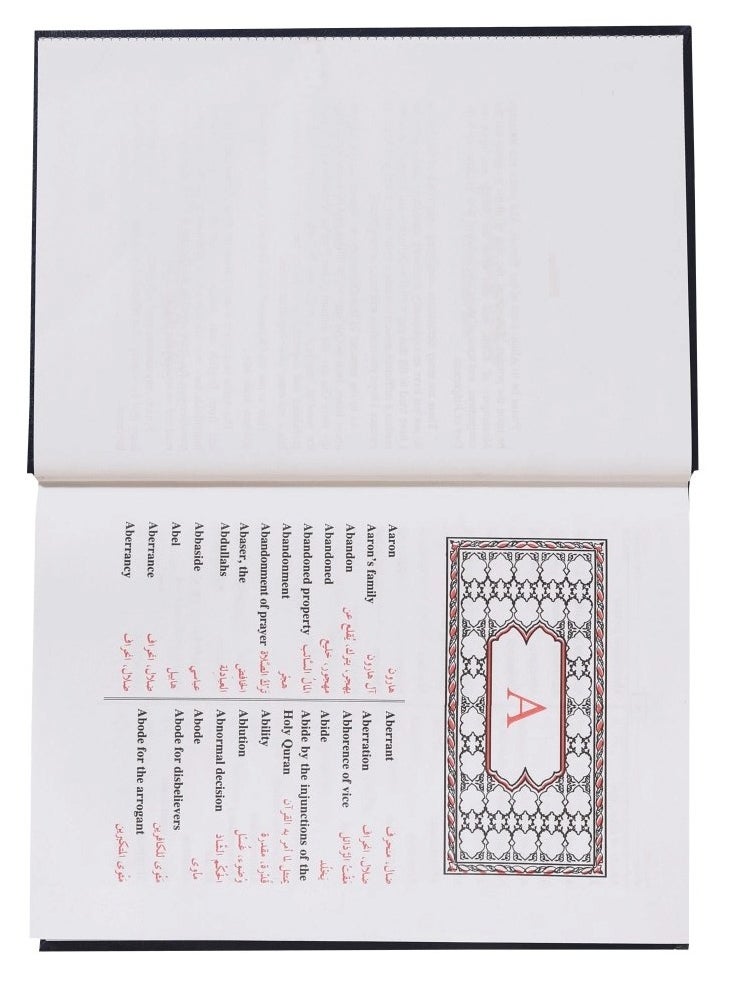 A
Aaron هارون
Aaron's family آل هارون
Abandon يهجر، يترك، يُقلع عن
Abandoned مهجور، خليع
Abandoned property المالُ السَّائب
Abandonment هجر
Abandonment of prayer تركُ الصَّلاة
Abaser, the الخافض
Abdullahs العبادلة
Abbaside عباسي
Abel هابيل
Aberrance ضلال، انحراف
Aberrancy ضلال، انحراف
Aberrant ضال، منحرف
Aberration ضلال، انحراف
Abhorence of vice مَقْتُ الرَّذائل
Abide يَخْلُد
Abide by the injunctions of the
Holy Quran يمتثل لما أمر به القرآن
Ability قُدْرة، مقدرة
Ablution وُضوء، غُسْل
Abnormal decision الحُكْم الشَّاذ
Abode مأوى
Abode for disbelievers
مَثْوى للكافرين
Abode for the arrogant
مَثْوى المتكبرين